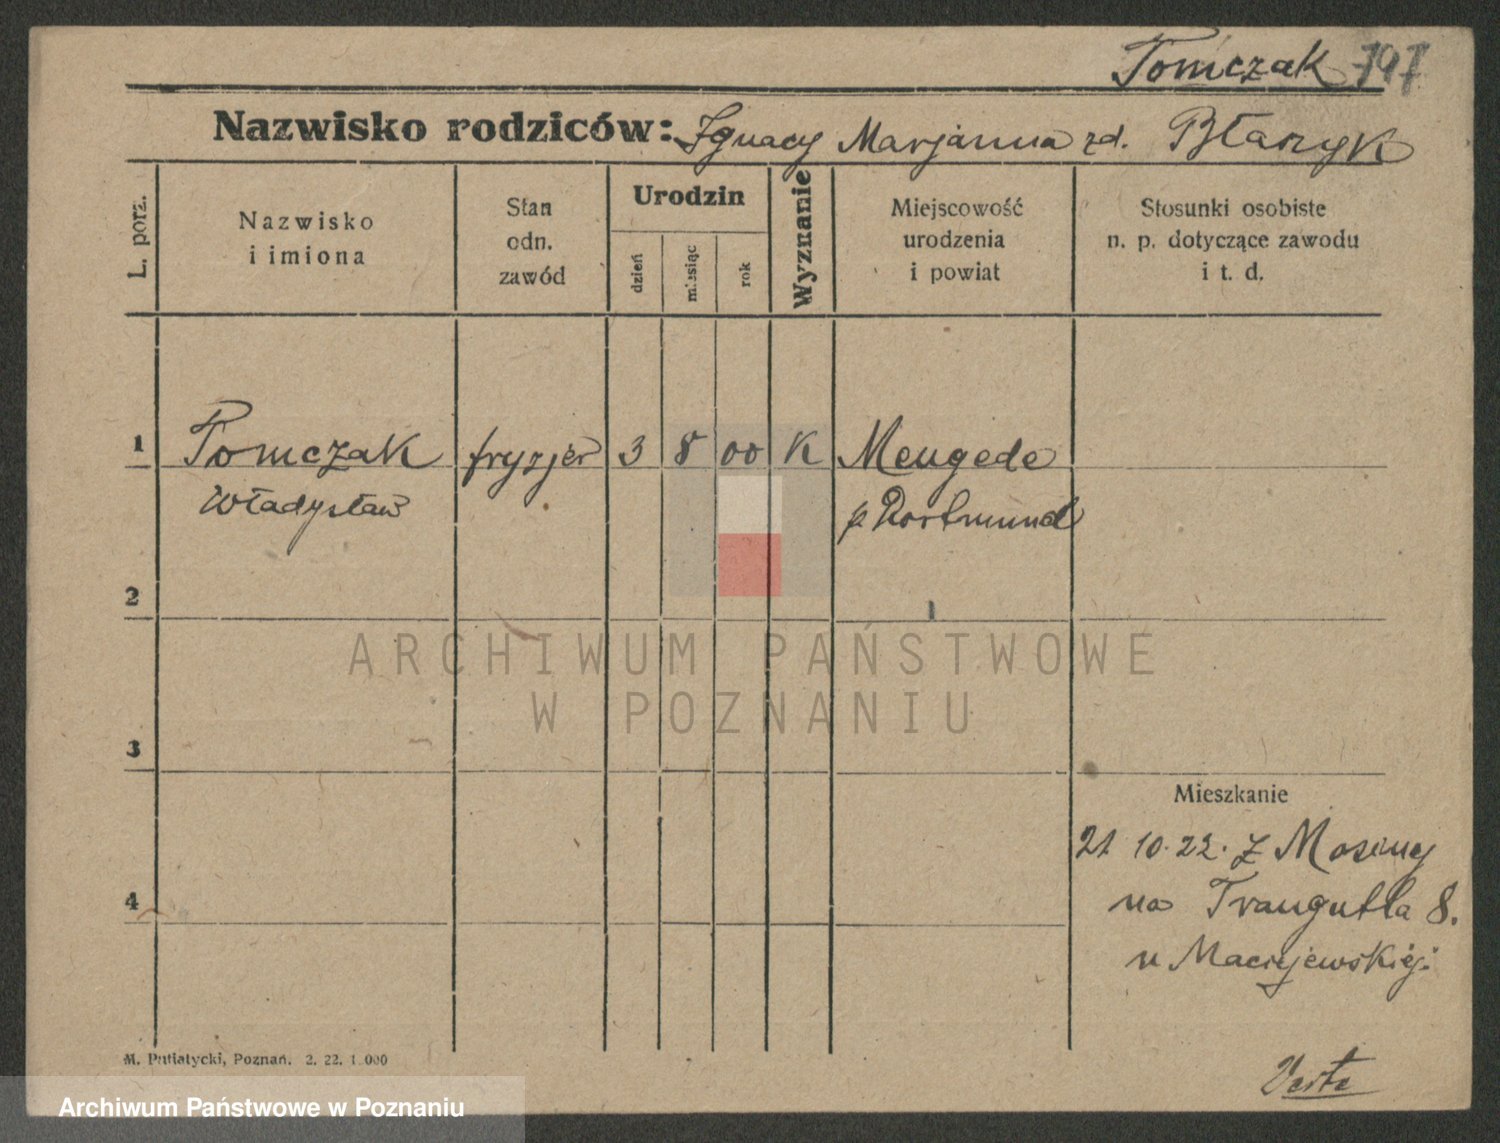 Tomczak 797
Nazwisko rodziców: Ignacy Marjanna zd. Błaszyk
L. porz.
Nazwisko
i imiona
Stan
odn.
zawód
Urodzin
dzień
miesiąc
rok
Wyznanie
Miejscowość
urodzenia
i powiat
Stosunki osobiste
n. p. dotyczące zawodu
i t. d.
1 Tomczak fryzjer 3 8 00 K Mengede
Władysław p Dortmund
2
ARCHIWUM PAŃSTWOWE
W POZNANIU
3
Mieszkanie
21 10.22. z Mosiny
4 na Traugutta 8.
u Maciejewskiej.
M. Putiatycki, Poznań. 2. 22. 1.000
Verte
Archiwum Państwowe w Poznaniu